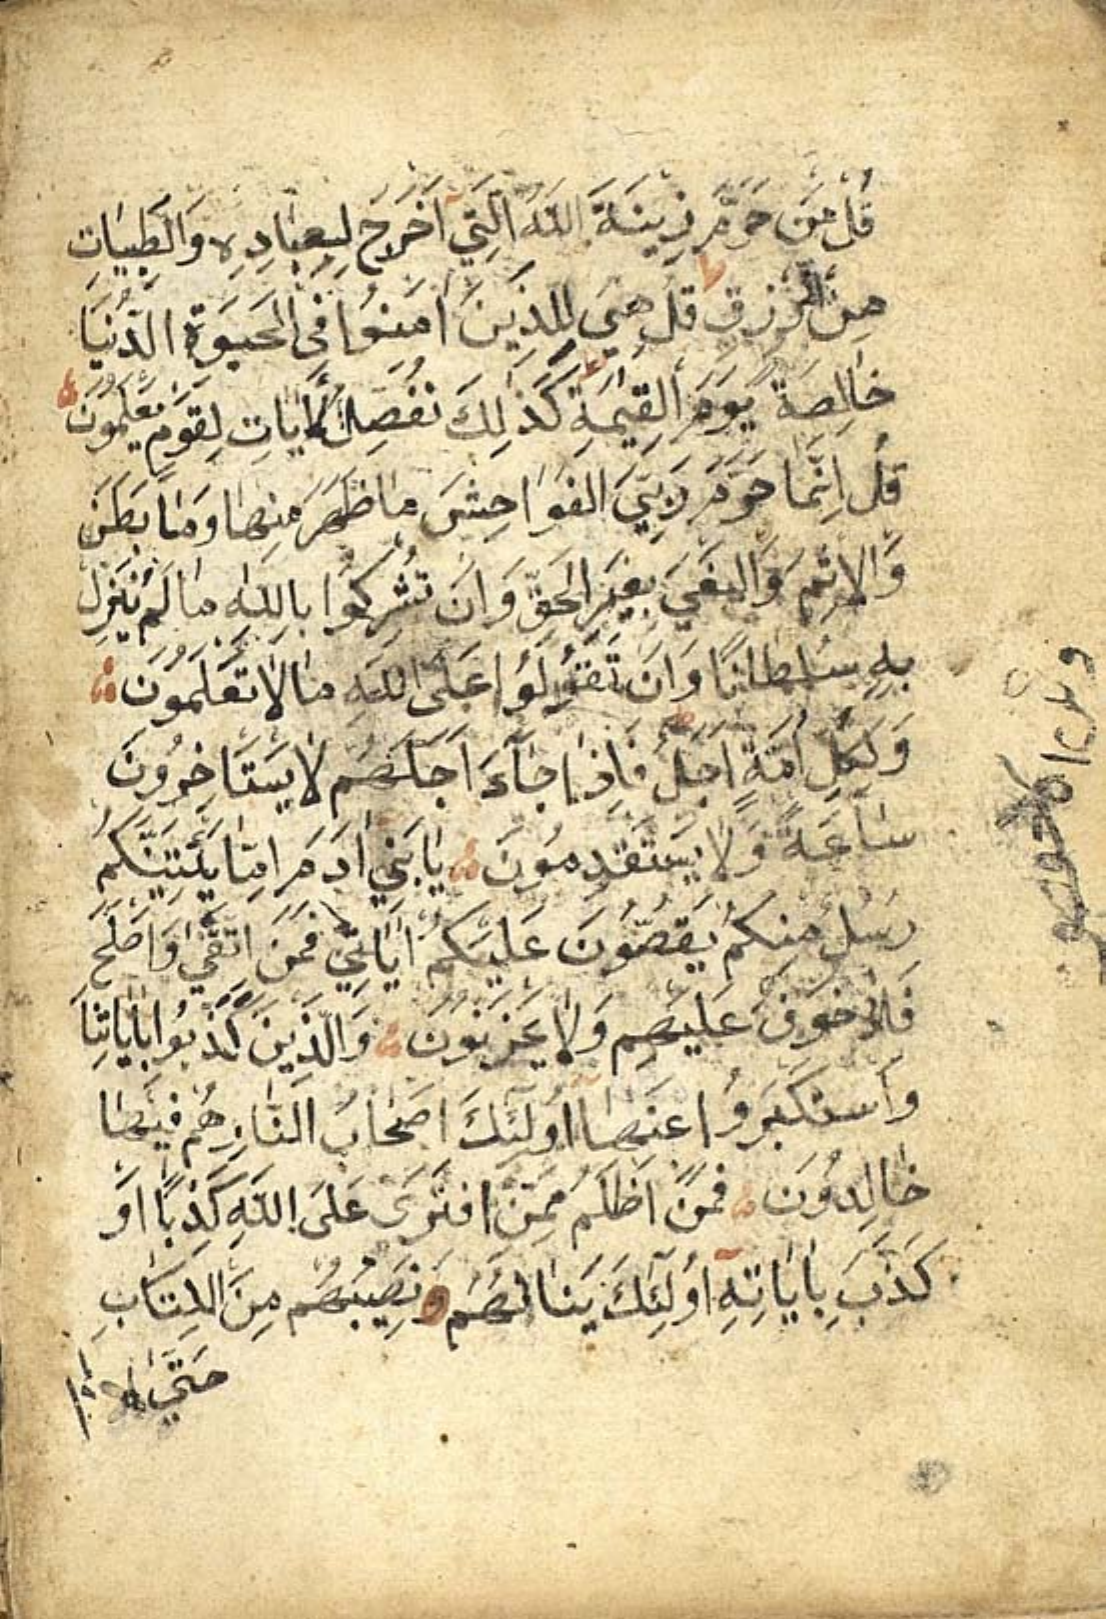 قُلْ مَنْ حَرَّمَ زِينَةَ اللّٰهِ الَّتِي اَخْرَجَ لِعِبَادِهِ وَالطَّيِّبَاتِ
مِنَ الرِّزْقِ قُلْ هِيَ لِلَّذِينَ اٰمَنُوا فِي الْحَيٰوةِ الدُّنْيَا
خَالِصَةً يَوْمَ الْقِيٰمَةِ كَذٰلِكَ نُفَصِّلُ الْاٰيَاتِ لِقَوْمٍ يَعْلَمُونَ
قُلْ اِنَّمَا حَرَّمَ رَبِّيَ الْفَوَاحِشَ مَا ظَهَرَ مِنْهَا وَمَا بَطَنَ
وَالْاِثْمَ وَالْبَغْيَ بِغَيْرِ الْحَقِّ وَاَنْ تُشْرِكُوا بِاللّٰهِ مَا لَمْ يُنَزِّلْ
بِهِ سُلْطَانًا وَاَنْ تَقُولُوا عَلَى اللّٰهِ مَا لَا تَعْلَمُونَ
وَلِكُلِّ اُمَّةٍ اَجَلٌ فَاِذَا جَآءَ اَجَلُهُمْ لَا يَسْتَاْخِرُونَ
سَاعَةً وَلَا يَسْتَقْدِمُونَ يَا بَنِي اٰدَمَ اِمَّا يَاْتِيَنَّكُمْ
رُسُلٌ مِنْكُمْ يَقُصُّونَ عَلَيْكُمْ اٰيَاتِي فَمَنِ اتَّقٰى وَاَصْلَحَ
فَلَا خَوْفٌ عَلَيْهِمْ وَلَا يَحْزَنُونَ وَالَّذِينَ كَذَّبُوا بِاٰيَاتِنَا
وَاسْتَكْبَرُوا عَنْهَا اُولٰٓئِكَ اَصْحَابُ النَّارِ هُمْ فِيهَا
خَالِدُونَ فَمَنْ اَظْلَمُ مِمَّنِ افْتَرٰى عَلَى اللّٰهِ كَذِبًا اَوْ
كَذَّبَ بِاٰيَاتِهِ اُولٰٓئِكَ يَنَالُهُمْ نَصِيبُهُمْ مِنَ الْكِتَابِ
حَتّٰى